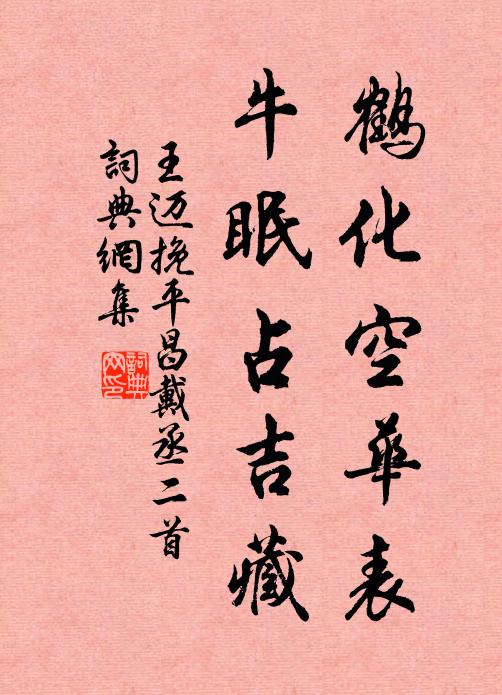 鶴化空華表
牛眠占吉藏
王迈挽平昌戴丞二首
詞典網集
詞典
网印